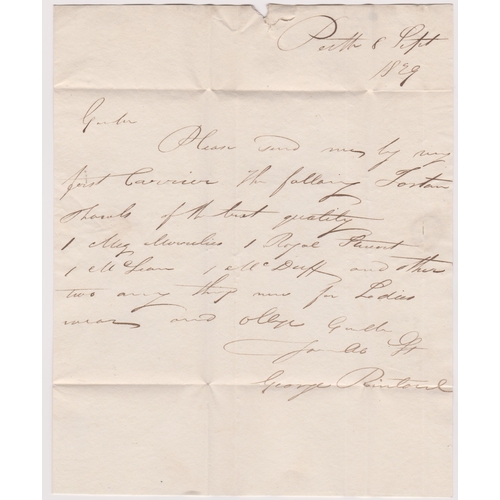 Perth 8 Sept
1829
Gentn
Please Send me by my
first Carrier the following Tartan
Shawls of the best quality
1 Meg Merrilies 1 Royal Stewart
1 McLean 1 McDuff and other
two any thing new for Ladies
wear and oblige Gentn
Your Ob St
George Rintoul